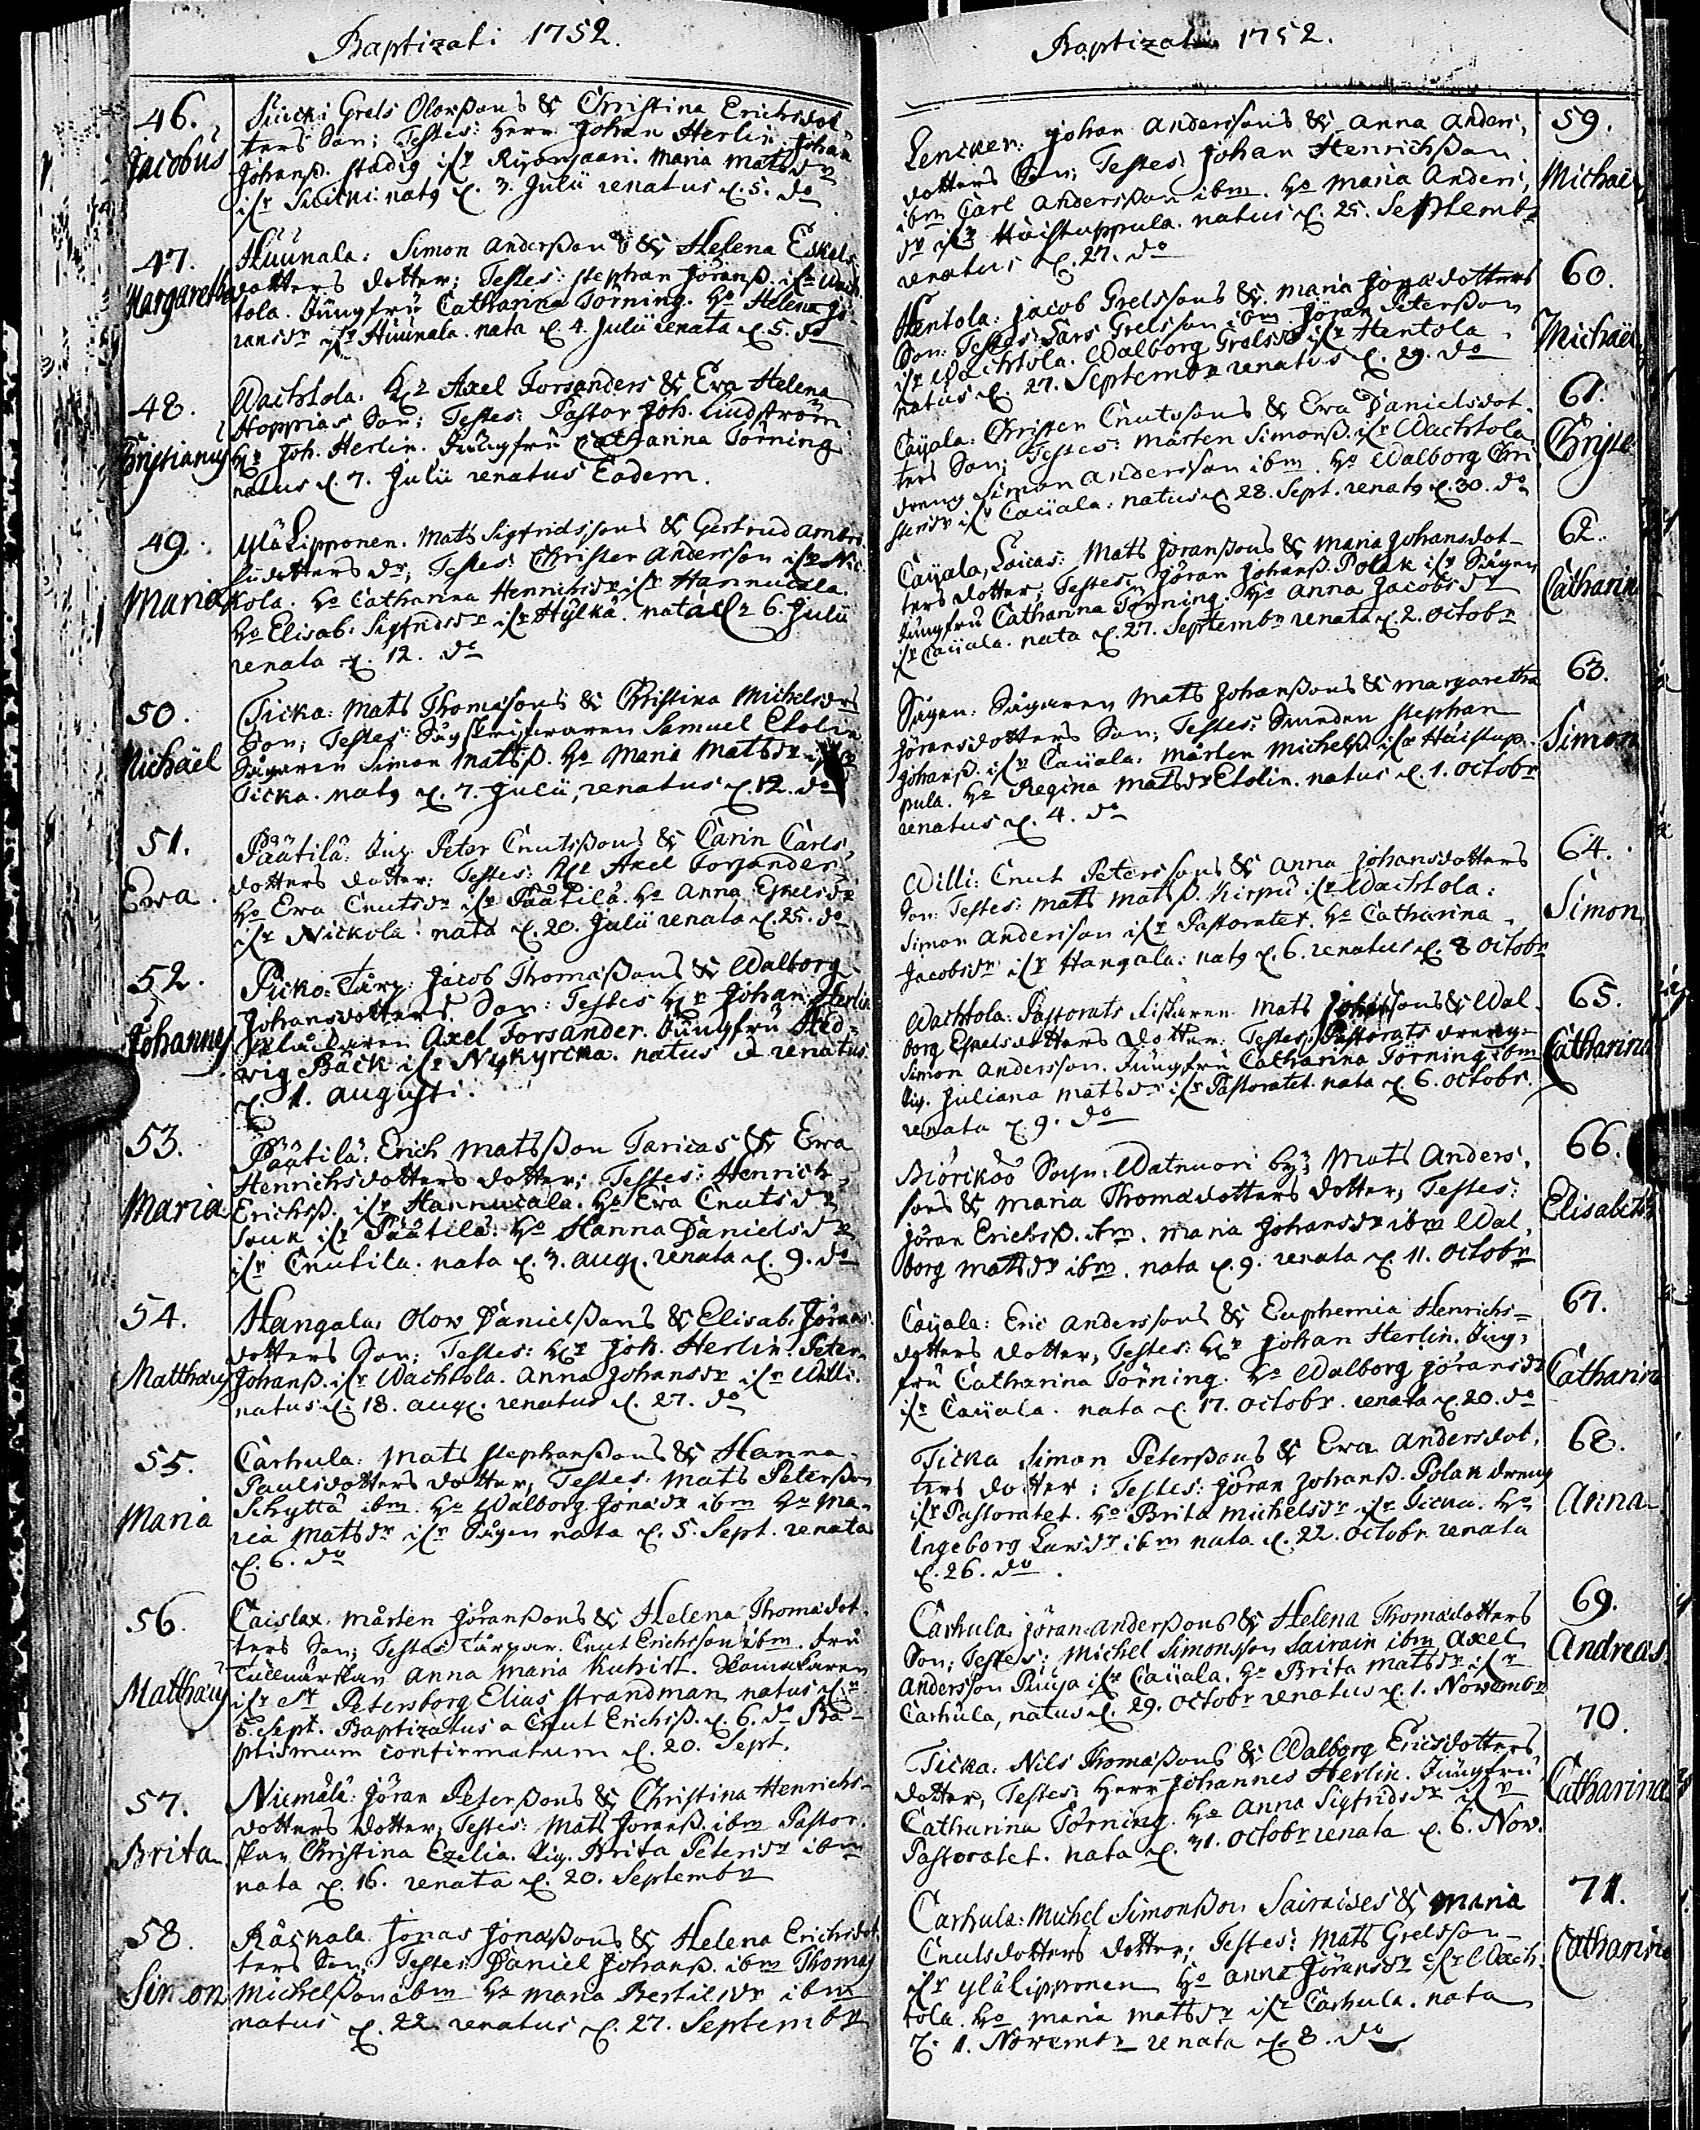 Baptizati 1752.
46.
Jacobus
Grels Olorßons & Christina Erichsdot
ters Son; Testes: Herr Johan Herlin. Johan
Johanß. stadig ifr Maria Mats dr
ifr nat9 d. 3. Julii renatus d. 5. do
47.
Margaretha
Hüünala: Simon Anderßons & Helena Eskels-
dotters dotter; Testes: Stephan Jöranß. ifr Wach-
tola. Jungfru Catharina Törning. Ho Helena Jö-
ransdr ifr Hüünala. nata d. 4. Julii renata d. 5. do
48.
Christianus
Wachtola. Axel Forsanders & Eva Helena
Hoppias Son; Testes: Pastor Joh. Lindström
Hr Joh. Herlin. Jungfru Catharina Törning
natus d. 7. Julii renatus Eodem.
49.
Maria
YläLipponen. Mats Sigfridssons & Gertrud Ambro
sidotters dr; Testes: Christer Andersson ifr Nic-
kola. Ho Catharina Henrichsdr ifr Hannucala.
Ho Elisab. Sigfridsdr ifr Hylkä. nata d. 6. Julii
renata d. 12. do
50.
Michaël
Ticka: Mats Thomasons & Christina Michelsdrs
Son; Testes: Samuel Etolin
Sågaren Simon Matsß. Ho Maria Matsdr ifr
Ticka. nat9 d. 7. Julii, renatus d. 12. do
51.
Ewa.
Päätilä: Peter Cnutßons & Carin Carls-
dotters dotter: Testes: Axel Forsander
Ho Ewa Cnutsdr ifr Päätilä. Ho Anna Eskelsdr
ifr Nickola. nata d. 20. Julii renata d. 25. do
52.
Johannes
Picko: Torp: Jacob Thomaßons & Walborg
Johansdotters Son: Testes Hr Johan Herlin
Klåckaren Axel Forsander. Jungfru Hed-
vig Bäck ifr Nykyrcka. natus & renatus
d. 1. Augusti.
53.
Maria
Päätilä: Erich Matsßon Taricas & Ewa
Henrichsdotters dotter; Testes: Henrich
Erichsß. ifr Hannucala. Ho Ewa Cnutsdr
Souk ifr Päätilä: Ho Hanna Danielsdr
ifr Cnutila. nata d. 3. Aug. renata d. 9. do
54.
Matthäus
Hangala: Olov Danielßons & Elisab. Jöran-
dotters Son; Testes: Hr Joh. Herlin. Peter
Johanß. ifr Wachtola. Anna Johansdr ifr Willi.
natus d. 18. Aug. renatus d. 27. do
55.
Maria
Carhula: Mats Stephanßons & Hanna
Paulsdotters dotter; Testes: Mats Peterßon
Skyttä ibm. Ho Walborg Jonadr ibm Ho Ma-
ria Matsdr ifr Sågen nata d. 5. Sept. renata
d. 6. do
56.
Matthäus
Caislax. Mårten Jöranßons & Helena Thomadot-
ters Son; Testes Cnut Erichsson ibm. fru
Anna Maria Kuhirt.
ifr St Petersborg Elias Strandman natus d.
6. Sept. Baptizatus a Cnut Erichsß. d. 6. do Ba-
ptismum confirmatum d. 20. Sept.
57.
Brita
Niemälä: Jöran Peterßons & Christina Henrichs-
dotters dotter; Testes: Mats Jöranß. ibm Pastor-
skan Christina Ezelia. Pig. Brita Petersdr ibm
nata d. 16. renata d. 20. Septembr
58.
Simon
Räskala Jonas Jonaßons & Helena Erichsdot-
ters Son; Testes: Daniel Johanß. ibm Thomas
Michelßon ibm Ho Maria Bertilsdr ibm
natus d. 22. renatus d. 27. Septembr
Baptizati 1752.
59.
Michaël
Lencken: Johan Anderssons & Anna Anders-
dotters Son; Testes: Johan Henrichßon
ibm Carl Andersson ibm. Ho Maria Anders-
dr ifr Häistuppula. natus d. 25. Septembr
renatus d. 27. do
60.
Michaël
Hentola: Jacob Grelssons & Maria Jonadotters
Son: Testes: Lars Grelsson ibm Jöran Peterßon
ifr Wachtola. Walborg Grelsdr ifr Hentola
natus d. 27. Septembr renatus d. 29. do
61.
Christe
Caijala: Christer Cnutssons & Ewa Danielsdot-
ters Son; Testes: Mårten Simonß. ifr Wachtola
dreng Simon Andersson ibm. Ho Walborg Chri
stersdr ifr Caijala: natus d. 28. Sept. renat9 d. 30. do
62.
Catharina
Caijala, Loicas: Mats Joranßons & Maria Johansdot-
ters dotter; Testes: Jöran Johanß. Polak ifr Sågen
Jungfru Catharina Törning. Ho Anna Jacobsdr
ifr Caijala. nata d. 27. Septembr renata d. 2. Octobr
63.
Simon
Sågen: Sågaren Mats Johanßons & Margaretha
Jöransdotters Son; Testes: Stephan
Johanß. ifr Caijala: Mårten Michelß. ifr Häistup-
pula. Ho Regina Matsdr Etolin. natus d. 1. Octobr
renatus d. 4. do
64.
Simon
Willi: Cnut Peterssons & Anna Johansdotters
Son: Testes: Mats Matsß. Kirpü ifr Wachtola:
Simon Andersson ifr Pastoratet. Ho Catharina
Jacobsdr ifr Hangala: nat9 d. 6. renatus d. 8 Octobr
65.
Catharina
Wachtola: Pastorats Mats Johanssons & Wal-
borg Eskelsdotters dotter. Testes: Pastorats drengen
Simon Andersson. Jungfru Catharina Törning ibm
Pig. Juliana Matsdr ifr Pastoratet. nata d. 6. Octobr.
renata d. 9. do
66.
Elisabeth
Biörköö Sogn: Watnuori by; Mats Anders-
sons & Maria Thomadotters dotter; Testes:
Jöran Erichsß. ibm. Maria Johansdr ibm Wal-
borg Matsdr ibm. nata d. 9. renata d. 11. Octobr
67.
Catharina
Caijala: Eric Anderssons & Euphemia Henrichs-
dotters dotter; Testes: Hr Johan Herlin. Jung-
fru Catharina Törning. Ho Walborg Jöransdr
ifr Caijala. nata d. 17. Octobr. renata d. 20. do
68.
Anna
Ticka Simon Peterßons & Ewa Andersdot-
ters dotter: Testes: Jöran Johanß. Polak dreng
ifr Pastoratet. Ho Brita Michelsdr ifr Ticka. Ho
Ingeborg Larsdr ibm nata d. 22. Octobr renata
d. 26. do.
69.
Andreas
Carhula. Jöran Anderßons & Helena Thomadotters
Son; Testes: Michel Simonsson Sairain ibm Axel
Andersson ifr Caijala. Ho Brita Matsdr ifr
Carhula, natus d. 29. Octobr renatus d. 1. Novembr
70.
Catharina
Ticka: Nils Thomaßons & Walborg Ericsdotters
dotter, Testes: Herr Johannes Herlin. Jungfru
Catharina Törning. Ho Anna Sigfridsdr ifr
Pastoratet. nata d. 31. Octobr renata d. 6. Nov.
71.
Catharina
Carhula: Michel Simonßon Sairaises & Maria
Cnutsdotters dotter; Testes: Mats Grelsson
ifr YläLipponen Ho Anna Jöransdr ifr Wach-
tola. Ho Maria Matsdr ifr Carhula. nata
d. 1. Novembr renata d. 8. do